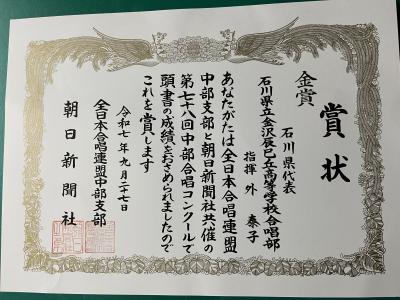 賞状
金賞
石川県代表
石川県立金沢辰巳丘高等学校合唱部
指揮 外 泰子
あなたがたは全日本合唱連盟
中部支部と朝日新聞社共催の
第七十八回中部合唱コンクールで
頭書の成績をおさめられましたので
これを賞します
令和七年九月二十七日
全日本合唱連盟中部支部
朝日新聞社